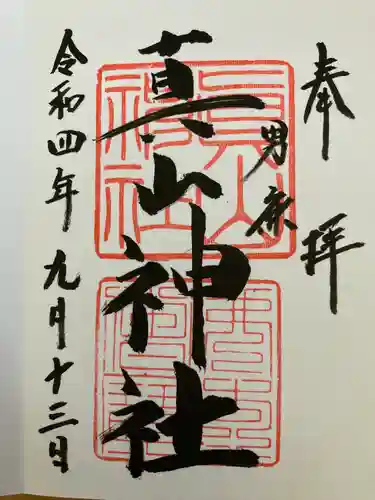 奉拝
男鹿
真山神社
令和四年九月十三日
真山神社